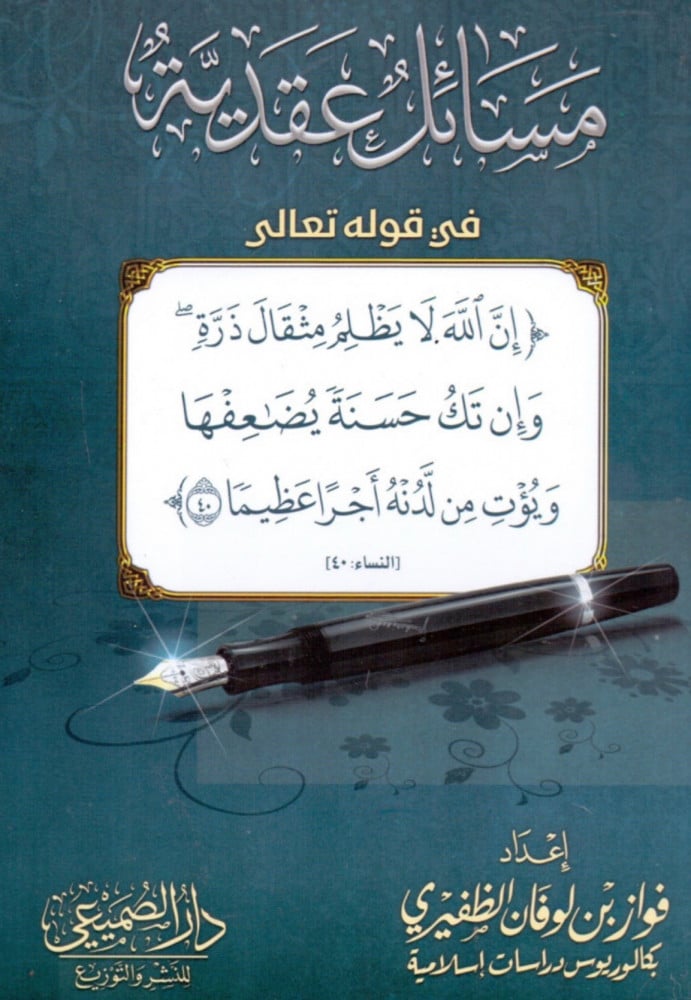 مسائل عقدية
في قوله تعالى
﴿ إِنَّ ٱللَّهَ لَا يَظْلِمُ مِثْقَالَ ذَرَّةٍ ۖ
وَإِن تَكُ حَسَنَةً يُضَٰعِفْهَا
وَيُؤْتِ مِن لَّدُنْهُ أَجْرًا عَظِيمًا ٤٠ ﴾
[النساء: ٤٠]
إعداد
فواز بن لوفان الظفيري
بكالوريوس دراسات إسلامية
دار الصميعي
للنشر والتوزيع